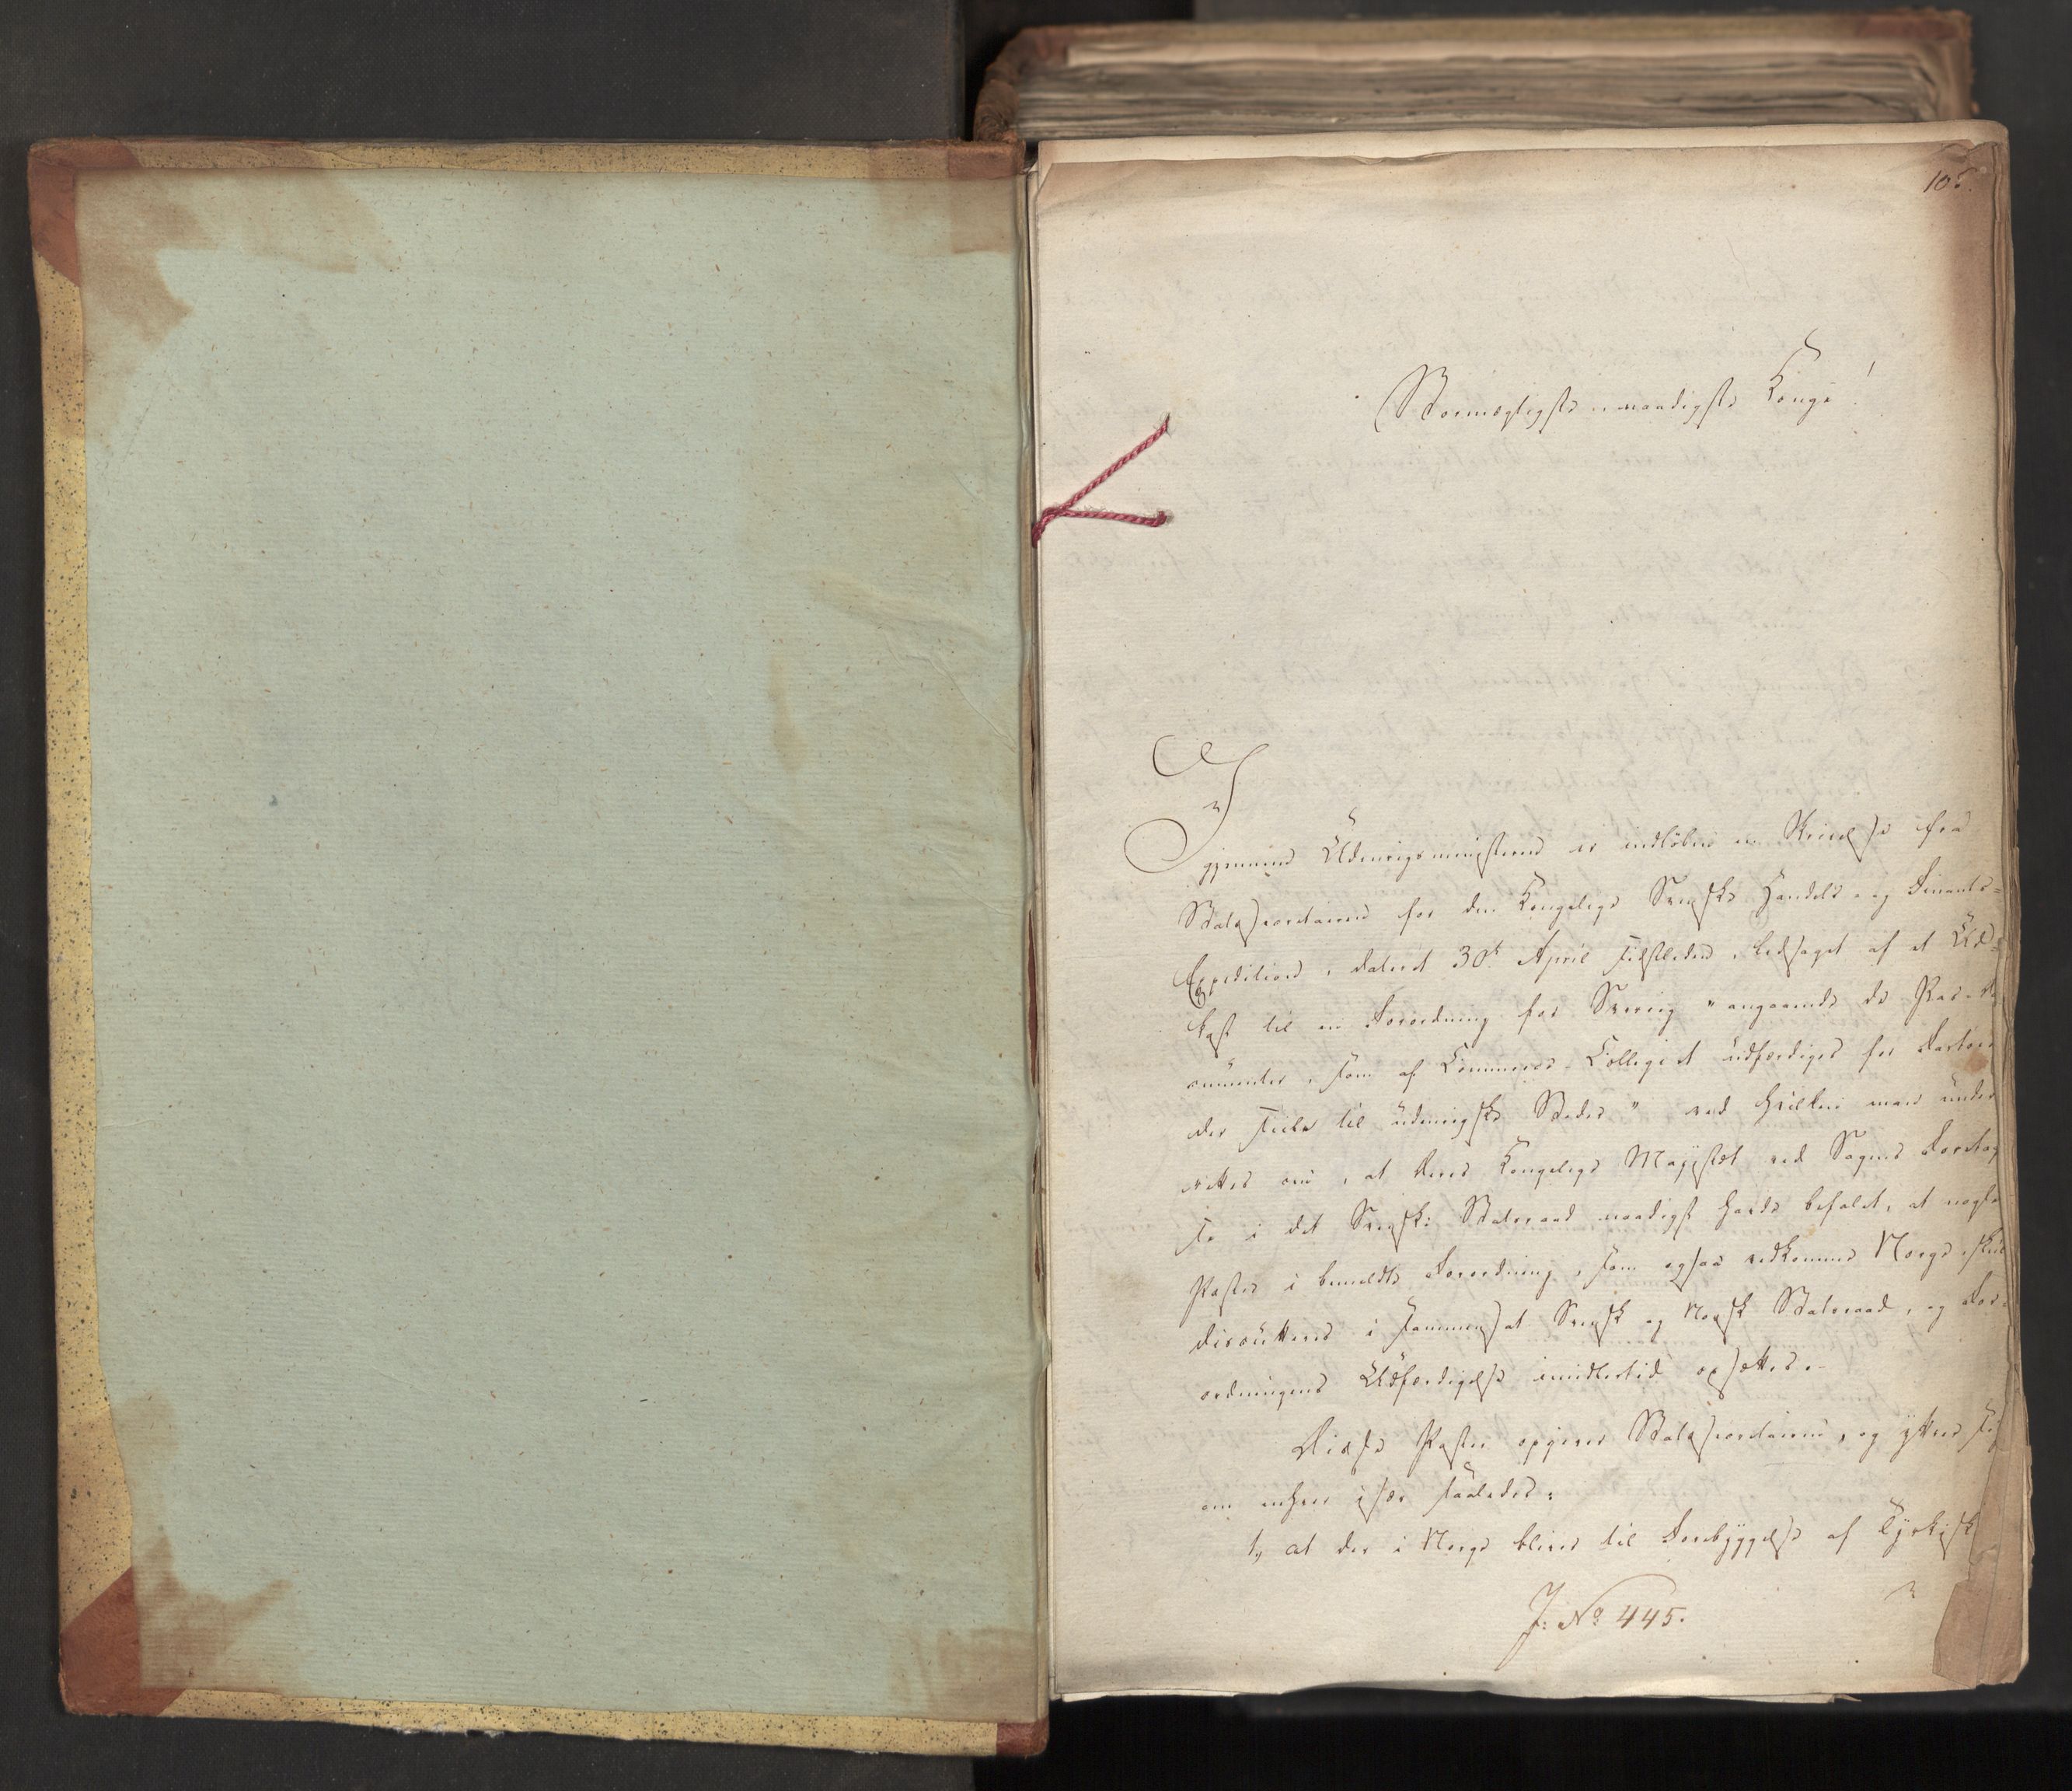 105.
Stormægtigste naadigste Konge!
Igjennem Udenrigsministeren er indløben en Skrivelse fra
Statssecretairen for den Kongelige Svenske Handels- og Finants-
Expedition, dateret 30te April sidstleden, ledsaget af et Ud-
kast til en Forordning for Sverrig "angaaende de Pas-do-
cumenter, som af Commerce-Collegiet udfærdiges for Fartøier
der seile til udenrigske Steder" ved hvilken man under-
rettes om, at Deres Kongelige Majestæt ved Sagens Foretagel-
se i det Svenske Statsraad naadigst havde befalet, at nogle
Poster i bemeldte Forordning, som ogsaa vedkomme Norge, skul
discutteres i sammensat Svensk og Norsk Statsraad, og For-
ordningens Udfærdigelse imidlertid opsættes.-
Disse Poster opgiver Statssecretairen, og yttrer sig
om enhver især saaledes:
1, at der i Norge bliver til Forebyggelse af Tyrkisk
J: No 445.